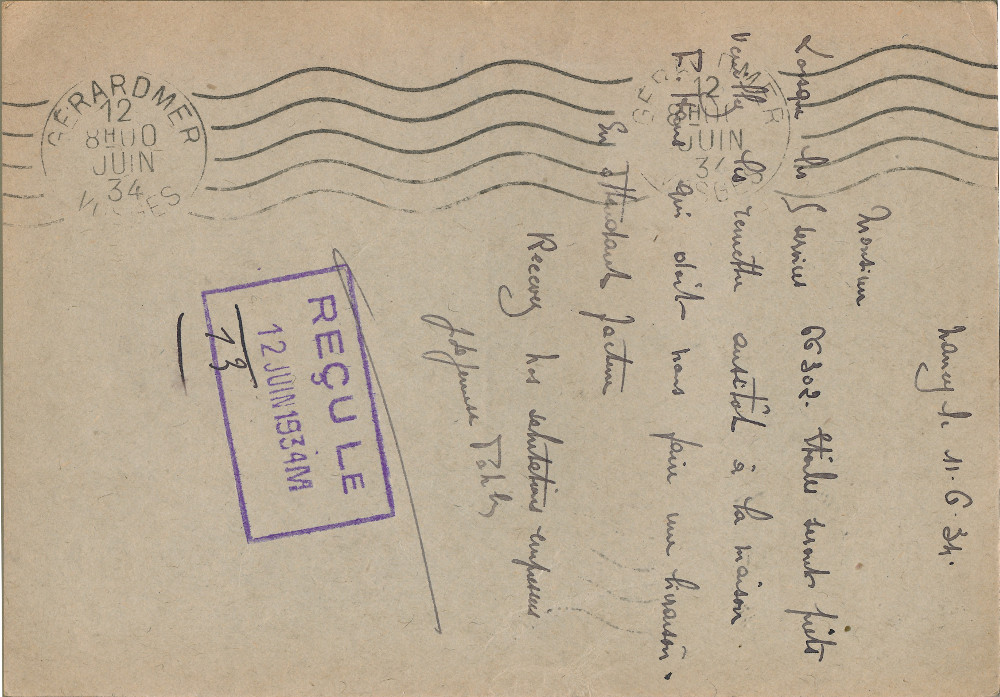 GÉRARDMER
12
8H00
JUIN
34
VOSGES
12
8H00
JUIN
34
Nancy le 11.6.34.
Monsieur
Lorsque les services 66302 Etoiles seront prêts
veuillez les remettre aussitôt à la maison
qui doit nous faire une livraison.
En attendant facture
Recevez nos salutations empressées.
REÇU LE
12 JUIN 1934 M
13